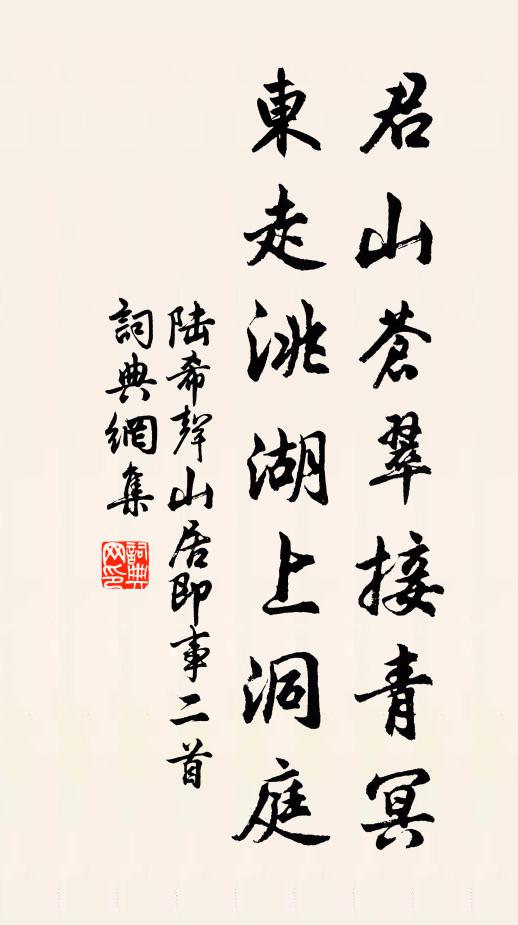 君山蒼翠接青冥
東走洮湖上洞庭
陸希聲山居即事二首
詞典網集
詞典網印